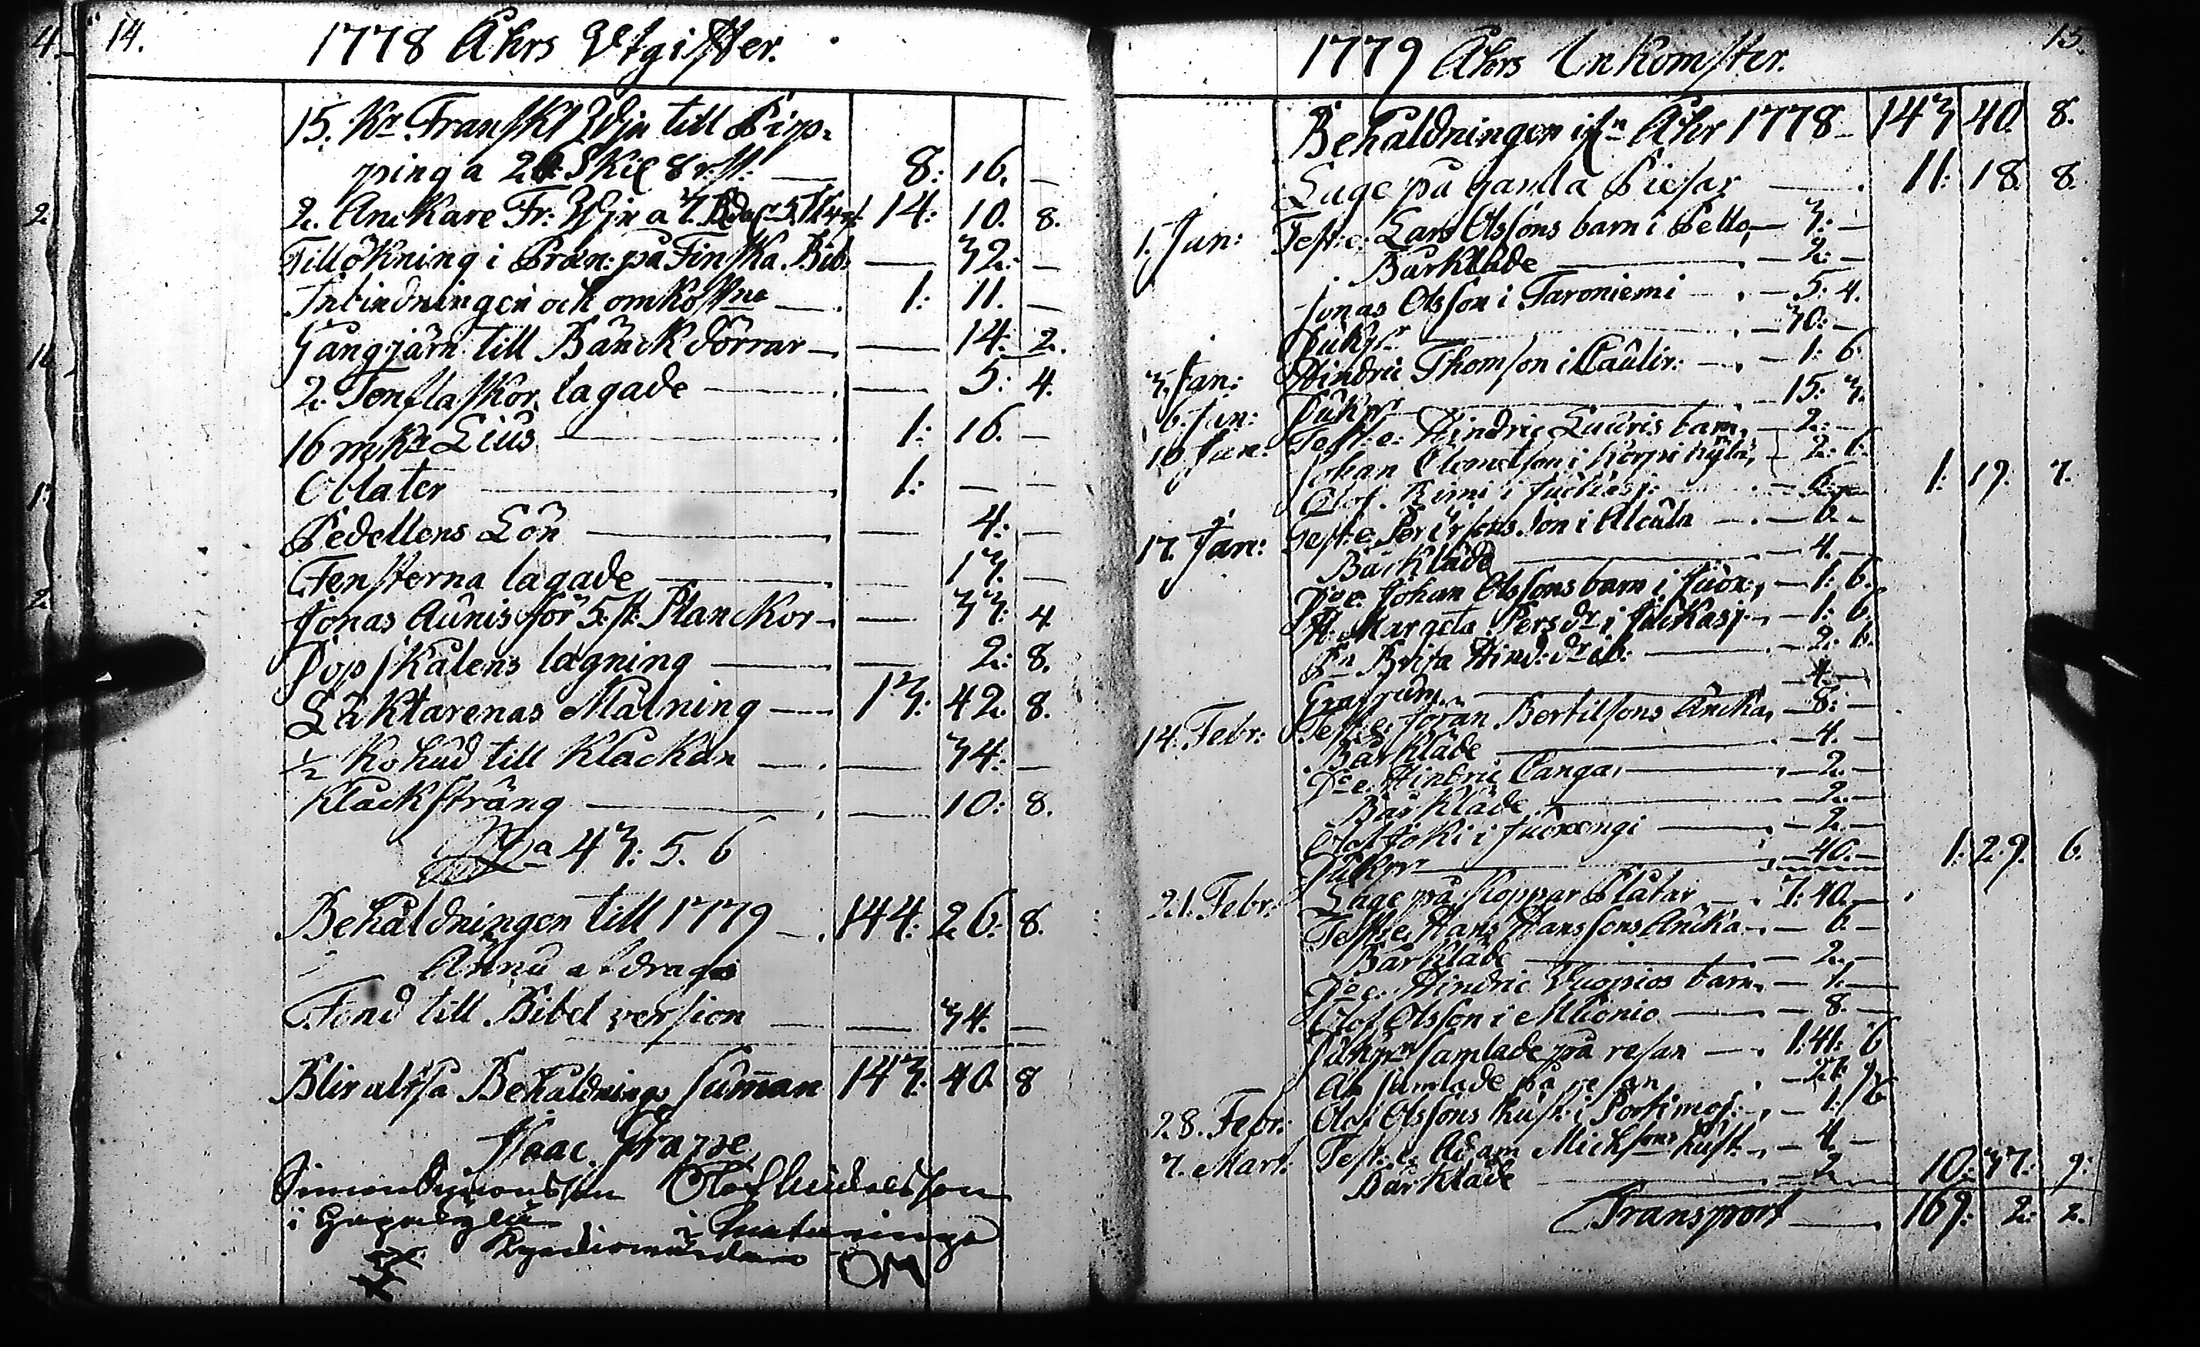 14.
1778 Åhrs Utgifter.
15. Kr. Franskt Wjn till Pip-
ping a 26 Skil 8 r:st: — 8: 16. —
2. Anckare Fr: Wjn a 14: 10. 8.
Tillökning i Præn: på Finska Bib: — 32: —
Inbindningen och omkostne — 1: 11. —
Gångjärn till Bänck dörrar — 14: 2.
2. Tenflaskor lagade — 5: 4.
16 mkr Lius — 1: 16. —
Oblater — 1: — —
Pedellens Lön — 4: —
Fensterna lagade — 13. —
Jonas Aunis för 5. st. Planckor — 33: 4
Dopskålens lagning — 2: 8.
Läktarenas Målning — 13: 42. 8.
1/2 Kohud till Kläcken — 34: —
Kläcksträng — 10: 8.
Sma 43: 5. 6
Behåldningen till 1779 — 144: 26: 8.
Ännu afdrages
Fond till Bibel version — 34. —
Blir altså Behåldnings summan 143: 40. 8
Isaac Grape
Simon Symonsson Olof Michelsson
i i
Kyrckiowärdar OM
15.
1779 Åhrs Inkomster.
Behåldningen ifrn Åhr 1778 — 143 40. 8.
Lage på gamla Piesar — 11: 18. 8.
1. Jan: Test: e: Lars Olssons barn i Pello, — 3: —
Bårkläde — 2: —
Jonas Olsson i Taroniemi — 5: 4.
Pukpr — 30: —
3. Jan: Hindric Thomson i Caulir: — 1: 6.
6. Jan: Pukpr — 15: 3.
10 Jan: Test: e: Hindric Lauris barn, — 2: —
Johan i Korpikylä, — 2: 6.
Olof Kimi i Juckasj: — 1: 19. 7.
17. Jan: Test: e. Per Ersons son i Alcula — 6. —
Bårkläde — 4. —
Do e. Johan Olssons barn i Juox, — 1: 6.
H: Margeta Persdr i Juckasj: — 1: 6.
Pn Brita Hind: dr ib: — 2: 6.
Grafrum — 4. —
14. Febr: Test: e: Jöran Bertilssons Äncka, — 8: —
Bårkläde — 4. —
Do e. Hindric Canga, — 2. —
Bårkläde — 2. —
Olof Joki i Juoxengi — 2. —
Pukpr — 40. — 1: 29. 6.
21. Febr: Lage på Koppar Platar — 7: 40. —
Test: e. Hans Hanssons Äncka — 6. —
Bårkläde — 2. —
Do e. Hindric Vuopios barn, — 1. —
Olof Olsson i Muonio — 8. —
Pukprn samlade på resan — 1: 41: 6
samlade på resan
28. Febr: Olof Olssons hust: i Portimoj: — 1: 6
7. Mart: Test: e. Adam Michsons hust: — 4. —
Bårkläde — 2 10: 37: 9:
Transport — 169: 2: 2.